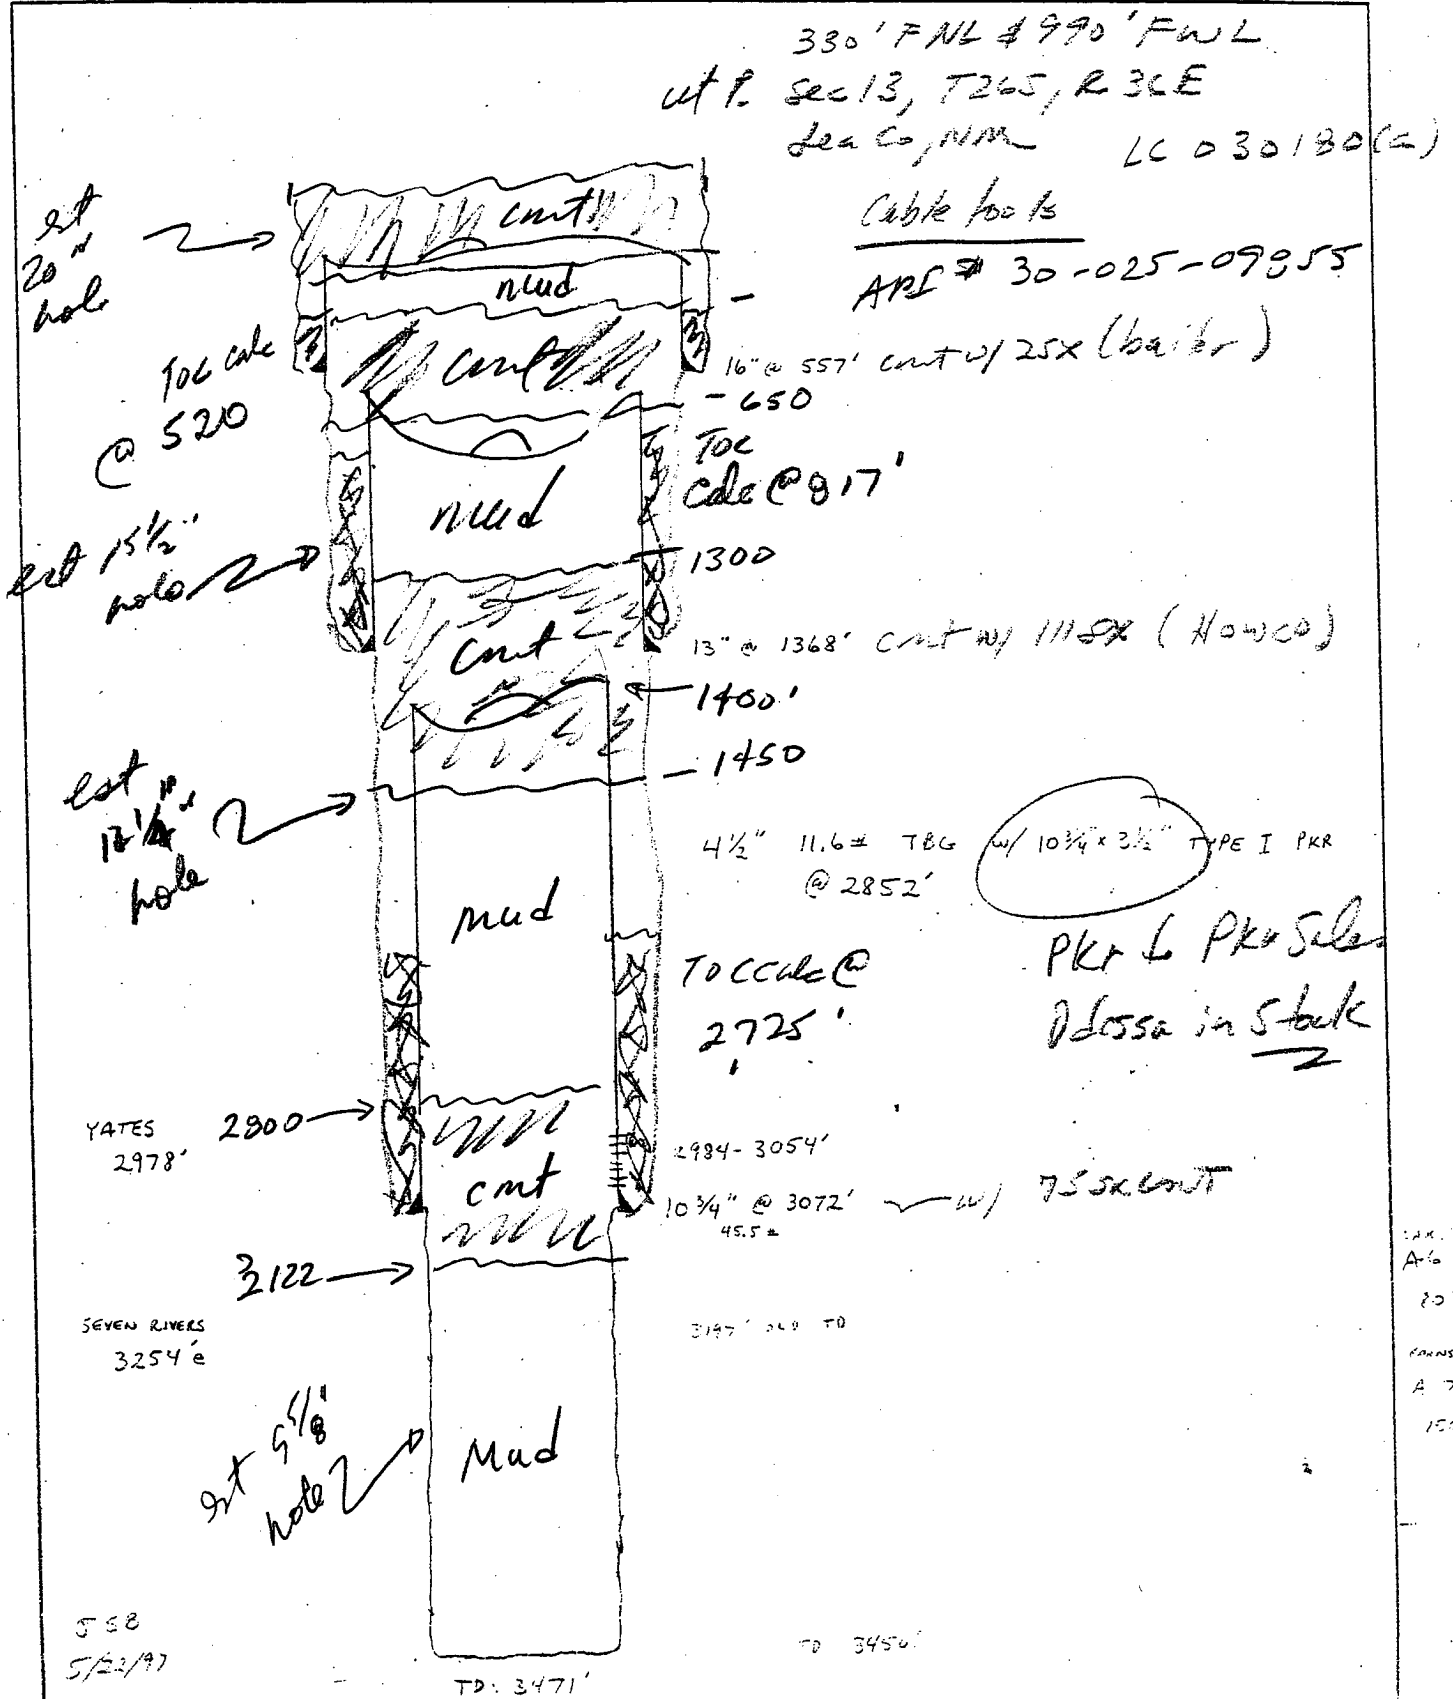 330' FNL & 990' FWL
ut P. Sec 13, T26S, R 36E
Lea Co, NM LC 030180(a)
est
20"
hole
cmt
Cable tools
mud
API # 30-025-09855
TOC calc
@ 520
cmt
16" @ 557' cmt w/ 25x (bailer)
- 650
TOC
calc @ 817'
mud
est 15 1/2"
hole
1300
cmt
13" @ 1368' cmt w/ 111 sx (Howco)
1400'
1450
est
12 1/4"
hole
4 1/2" 11.6# TBG w/ 10 3/4" x 3 1/2" TYPE I PKR
@ 2852'
mud
PKr to PKr Sales
Odessa in Stock
TOC calc @
2725'
YATES
2978'
2800
2984-3054'
cmt
10 3/4" @ 3072' w/ 75 sx cmt
45.5#
3122
SEVEN RIVERS
3254' e
3197' OLD TD
est 9 5/8"
hole
Mud
JSB
5/22/97
TD 3450'
TD: 3471'